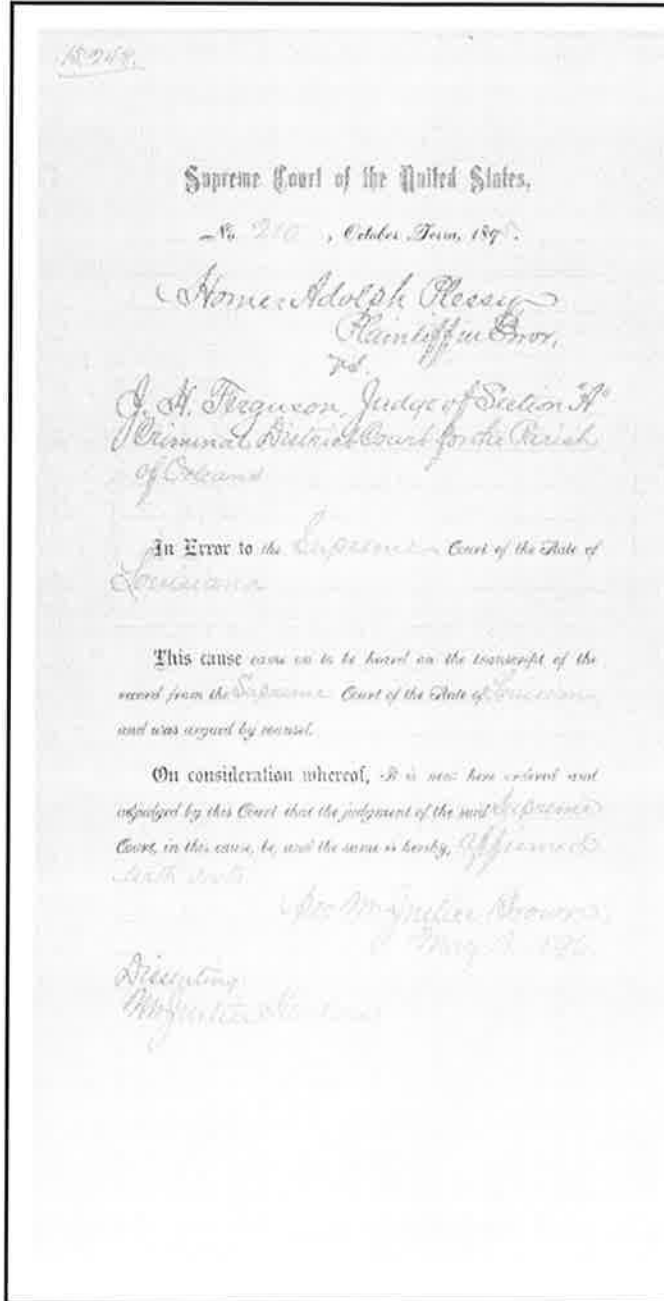 15,248.
Supreme Court of the United States,
No. 210, October Term, 1895.
Homer Adolph Plessy
Plaintiff in Error,
vs.
J. H. Ferguson, Judge of Section "A"
Criminal District Court for the Parish
of Orleans
In Error to the Supreme Court of the State of
Louisiana
This cause came on to be heard on the transcript of the
record from the Supreme Court of the State of Louisiana
and was argued by counsel.
On consideration whereof, It is now here ordered and
adjudged by this Court that the judgment of the said Supreme
Court, in this cause, be, and the same is hereby, affirmed
with costs.
per Mr. Justice Brown,
May 18, 1896.
Dissenting:
Mr. Justice Harlan